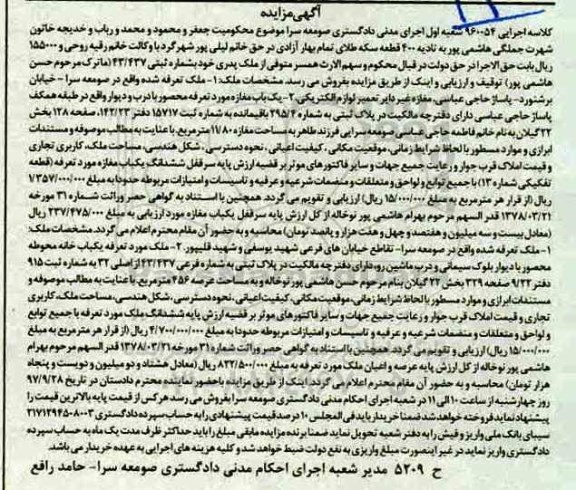 آگهی مزایده
کلاسه اجرایی ۹۶۰۰۵۴ شعبه اول اجرای مدنی دادگستری صومعه سرا موضوع محکومیت جعفر و محمود و محمد و رباب و خدیجه خاتون
شهرت جملگی هاشمی پور به تادیه ۴۰۰ قطعه سکه طلای تمام بهار آزادی در حق خانم لیلی پور شهرگرد با وکالت خانم رقیه روحی و ۱۵۵۰۰۰
ریال بابت حق الاجرا در حق دولت در قبال محکوم و سهم الارث همسر متوفی از ملک پدری خود بشماره ثبتی ۴۳/۴۳۷ (ماترک مرحوم حسن
هاشمی پور) توقیف و ارزیابی و اینک از طریق مزایده بفروش می رسد. مشخصات ملک: ۱- ملک تعرفه شده واقع در صومعه سرا - خیابان
برشنورد - پاساژ حاجی عباسی، مغازه غیر دایر تعمیر لوازم الکتریکی ۲- یک باب مغازه مورد تعرفه محصور با درب و دیوار واقع در طبقه همکف
پاساژ حاجی عباسی دارای دفترچه مالکیت در پلاک ثبتی به شماره ۲۹۵/۴ باقیمانده به شماره ثبت ۱۵۷۱۷ دفتر ۱۴۲/۲۳، صفحه ۱۲۸ بخش
۲۲ گیلان به نام خانم فاطمه حاجی عباسی صومعه سرایی فرزند طاهر به مساحت مغازه ۱۱/۸۰ مترمربع. با عنایت به مطالب موصوفه و مستندات
ابرازی و موارد مسطور با لحاظ شرایط زمانی، موقعیت مکانی، کیفیت اعیانی، نحوه دسترسی، شکل هندسی، مساحت ملک، کاربری تجاری
و قیمت املاک قرب جوار و رعایت جمیع جهات و سایر فاکتورهای موثر بر قضیه ارزش پایه سرقفل ششدانگ یکباب مغازه مورد تعرفه (قطعه
تفکیکی شماره ۱۳) با جمیع توابع و لواحق و متعلقات و منضمات شرعیه و عرفیه و تاسیسات و امتیازات مربوطه حدودا به مبلغ ۱/۳۵۷/۰۰۰/۰۰۰
ریال (از قرار هر مترمربع به مبلغ ۱۵/۰۰۰/۰۰۰ ریال) ارزیابی و تقویم می گردد. همچنین با استناد به گواهی حصر وراثت شماره ۳۱ مورخه
۱۳۷۸/۰۳/۲۱ قدر السهم مرحوم بهرام هاشمی پور نوخاله از کل ارزش پایه سرقفل یکباب مغازه مورد ارزیابی به مبلغ ۲۳۷/۴۷۵/۰۰۰ ریال
(معادل بیست و سه میلیون و هفتصد و چهل و هفت هزار و پانصد تومان) محاسبه و به حضور آن مقام محترم اعلام می گردد. مشخصات ملک:
۱- ملک تعرفه شده واقع در صومعه سرا- تقاطع خیابان های فرعی شهید یوسفی و شهید قلیپور. ۲- ملک مورد تعرفه یکباب خانه محوطه
محصور با دیوار بلوک سیمانی و درب ماشین رو، دارای دفترچه مالکیت در پلاک ثبتی به شماره فرعی ۴۳/۴۳۷ از اصلی ۳۲ به شماره ثبت ۹۱۵
دفتر ۹/۲۲ صفحه ۳۲۹ بخش ۲۲ گیلان بنام مرحوم حسن هاشمی پور نوخاله و به مساحت عرصه ۴۵۶ مترمربع. با عنایت به مطالب موصوفه و
مستندات ابرازی و موارد مسطور با لحاظ شرایط زمانی، موقعیت مکانی، کیفیت اعیانی، نحوه دسترسی، شکل هندسی، مساحت ملک، کاربری
تجاری و قیمت املاک قرب جوار و رعایت جمیع جهات و سایر فاکتورهای موثر بر قضیه ارزش پایه ششدانگ ملک مورد تعرفه با جمیع توابع
و لواحق و متعلقات و منضمات شرعیه و عرفیه و تاسیسات و امتیازات مربوطه حدودا به مبلغ ۴/۷۰۰/۰۰۰/۰۰۰ ریال (از قرار هر مترمربع به مبلغ
۱۵/۰۰۰/۰۰۰ ریال) ارزیابی و تقویم می گردد. همچنین با استناد به گواهی حصر وراثت شماره ۳۱ مورخه ۱۳۷۸/۰۳/۲۱ قدر السهم مرحوم بهرام
هاشمی پور نوخاله از کل ارزش پایه عرصه و اعیان ملک مورد تعرفه به مبلغ ۸۲۲/۵۰۰/۰۰۰ ریال (معادل هشتاد و دو میلیون و دویست و پنجاه
هزار تومان) محاسبه و به حضور آن مقام محترم اعلام می گردد. اینک از طریق مزایده با حضور نماینده محترم دادستان در تاریخ ۹۷/۹/۲۸
روز چهارشنبه از ساعت ۱۰ الی ۱۱ در شعبه اجرای احکام مدنی دادگستری صومعه سرا بفروش می رسد هر کس از قیمت پایه بالاترین قیمت را
پیشنهاد نماید فروخته خواهد شد ضمنا خریدار باید فی المجلس ۱۰ درصد قیمت پیشنهادی را به حساب سپرده دادگستری ۲۱۷۱۲۹۴۵۰۸۰۰۳
سیبای بانک ملی واریز و فیش را به دفتر شعبه تحویل نماید ضمنا برنده مزایده مابقی مبلغ را باید حداکثر ظرف مدت یک ماه به حساب سپرده
دادگستری واریز نماید در غیر اینصورت مبلغ واریزی به نفع دولت ضبط خواهد شد و کلیه هزینه های اجرایی به عهده خریدار می باشد.
ح ۵۲۰۹ مدیر شعبه اجرای احکام مدنی دادگستری صومعه سرا- حامد رافع